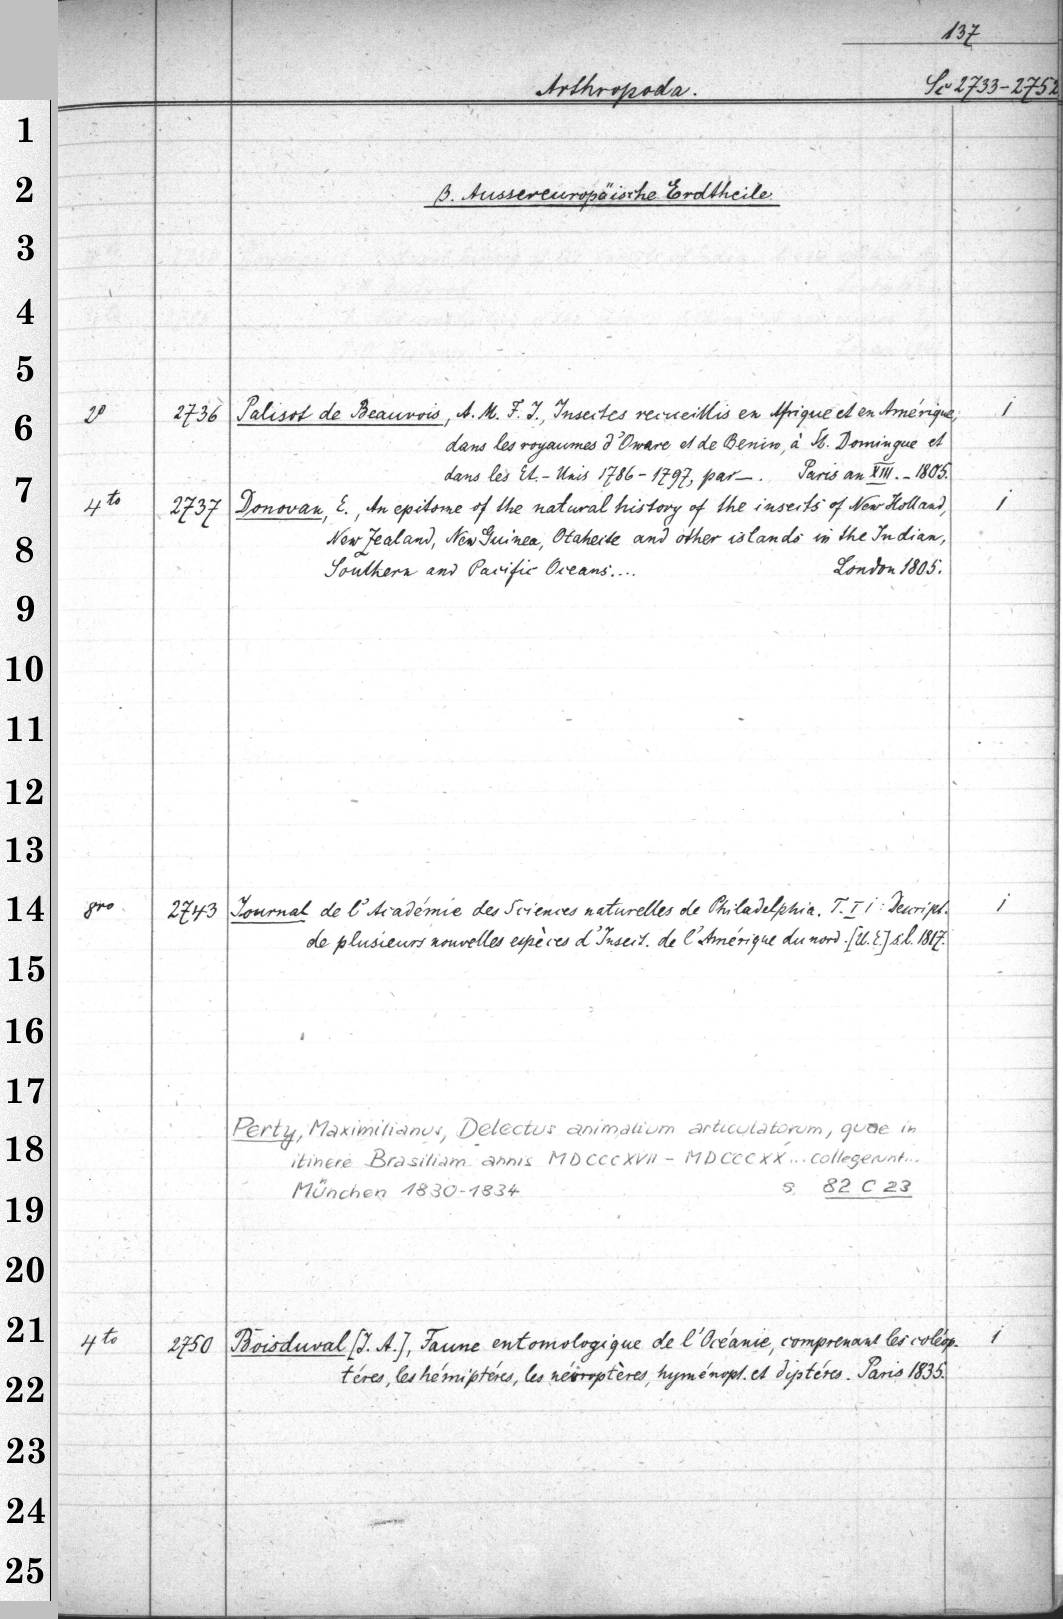 137
Arthropoda. Sc 2733-2752
1
2 β. Aussereuropäische Erdtheile.
3
4
5
6 2º 2736 Palisot de Beauvois, A. M. F. J., Insectes recueillis en Afrique et en Amérique, 1
dans les royaumes d'Oware et de Benin, à St. Domingue et
7 dans les Et.-Unis 1786-1797, par—. Paris an XIII.-1805.
4to 2737 Donovan, E., An epitome of the natural history of the insects of New Holland, 1
8 New Zealand, New Guinea, Otaheite and other islands in the Indian,
Southern and Pacific Oceans.... London 1805.
9
10
11
12
13
14 8vo 2743 Journal de l'Académie des Sciences naturelles de Philadelphia. T. I 1: Descript. 1
15 de plusieurs nouvelles espèces d'Insect. de l'Amérique du nord. [U. E.] s.l. 1817.
16
17
18 Perty, Maximilianus, Delectus animalium articulatorum, quae in
itinere Brasiliam annis MDCCCXVII - MDCCCXX... collegerunt...
19 München 1830-1834 s. 82 C 23
20
21 4to 2750 Boisduval [J. A.], Faune entomologique de l'Océanie, comprenant les coléop- 1
22 téres, les hémiptéres, les névroptères, hyménopt. et diptéres. Paris 1835.
23
24
25